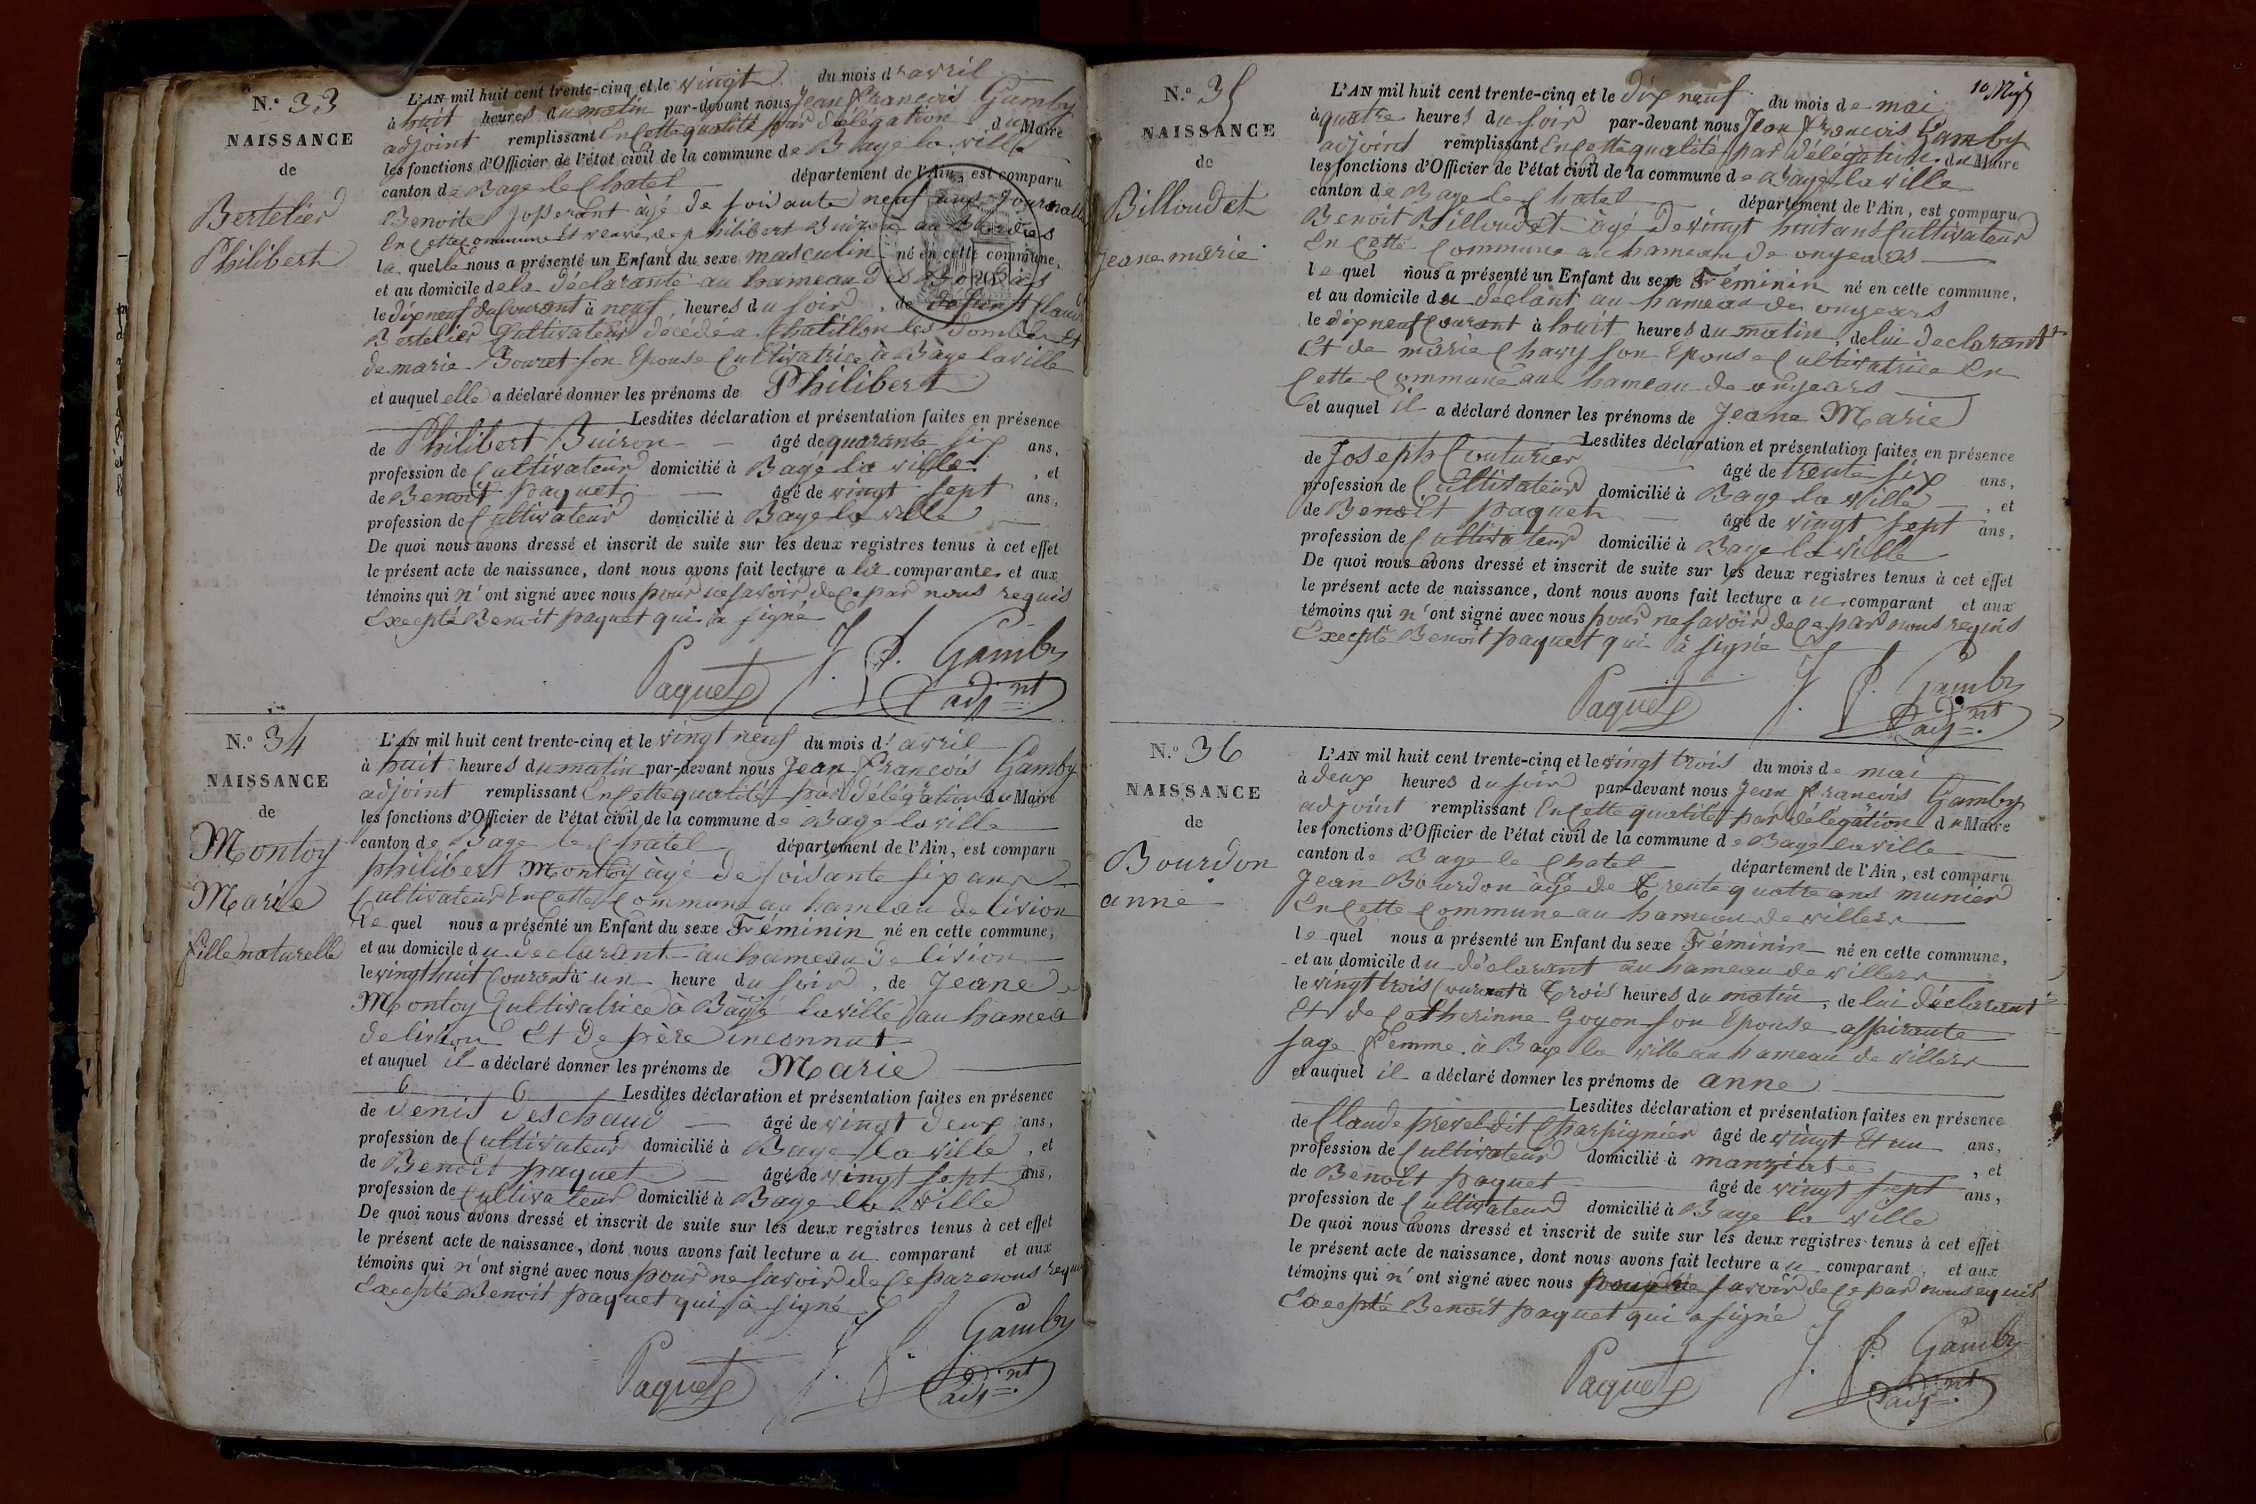 N.º 33
NAISSANCE
de
Bertelier
Philibert
L'AN mil huit cent trente-cinq et le vingt du mois d'avril
à huit heures du matin par-devant nous Jean François Gamby
adjoint remplissant En Cette qualité par délégation du Maire
les fonctions d'Officier de l'état civil de la commune de Bage la ville
canton de Bage le Chatel département de l'Ain, est comparu
Benoite Josserant âgé de soixante neuf ans Journalle
En Cette Commune Et veuve de philibert Buiron au Bordes
la quelle nous a présenté un Enfant du sexe masculin né en cette commune,
et au domicile de la déclarante au hameau des Bordes
le dix neuf du Courant à neuf heures du soir, de défunt Claude
Bertelier Cultivateur décédé a Chatillon les Dombes Et
de marie Bouret son Epouse Cultivatrice à Bâge la ville
et auquel elle a déclaré donner les prénoms de Philibert
Lesdites déclaration et présentation faites en présence
de Philibert Buiron âgé de quarante six ans,
profession de Cultivateur domicilié à Bagé la ville, et
de Benoit paquet âgé de vingt sept ans,
profession de Cultivateur domicilié à Bage la ville
De quoi nous avons dressé et inscrit de suite sur les deux registres tenus à cet effet
le présent acte de naissance, dont nous avons fait lecture a la comparante et aux
témoins qui n'ont signé avec nous pour ne savoir de Ce par nous requis
Excepté Benoit paquet qui à signé
Paquet J. F. Gamby
adj.nt
N.º 34
NAISSANCE
de
Montoy
Marie
fille naturelle
L'AN mil huit cent trente-cinq et le vingt neuf du mois d'avril
à huit heures du matin par-devant nous Jean François Gamby
adjoint remplissant En Cette qualité par délégation du Maire
les fonctions d'Officier de l'état civil de la commune de Bage la ville
canton de Bage le Chatel département de l'Ain, est comparu
philibert Montoy âgé de soixante six ans
Cultivateur En Cette Commune au hameau de livion
le quel nous a présenté un Enfant du sexe Féminin né en cette commune,
et au domicile du declarant au hameau de livion
le vingt huit Courant à un heure du soir, de Jeane
Montoy Cultivatrice à Bâgé la ville au hamea
de livion Et De père inconnut
et auquel il a déclaré donner les prénoms de Marie
Lesdites déclaration et présentation faites en présence
de Denis Deschaud âgé de vingt deux ans,
profession de Cultivateur domicilié à Bage la ville, et
de Benoit paquet âgé de vingt sept ans,
profession de Cultivateur domicilié à Bage la ville
De quoi nous avons dressé et inscrit de suite sur les deux registres tenus à cet effet
le présent acte de naissance, dont nous avons fait lecture a u comparant et aux
témoins qui n'ont signé avec nous pour ne savoir de Ce par nous requi
Excepté Benoit paquet qui à signé
Paquet J. F. Gamby
adj.nt
10
N.º 35
NAISSANCE
de
Billoudet
Jeane marie
L'AN mil huit cent trente-cinq et le dix neuf du mois de mai
à quatre heures du soir par-devant nous Jean François Gamby
adjoint remplissant En Cette qualité par délégation du Maire
les fonctions d'Officier de l'état civil de la commune de Bage la ville
canton de Bage le Chatel département de l'Ain, est comparu
Benoit Billoudet âgé De vingt huit ans Cultivateur
En Cette Commune au hameau de onjears
le quel nous a présenté un Enfant du sexe Féminin né en cette commune,
et au domicile du déclant au hameau de onjears
le dix neuf Courant à huit heures du matin, de lui declarant
Et de marie Chavy son Epouse Cultivatrice En
Cette Commune au hameau de onjears
et auquel il a déclaré donner les prénoms de Jeane Marie
Lesdites déclaration et présentation faites en présence
de Joseph Couturier âgé de trente six ans,
profession de Cultivateur domicilié à Bage la ville, et
de Benoit paquet âgé de vingt sept ans,
profession de Cultivateur domicilié à Bage la ville
De quoi nous avons dressé et inscrit de suite sur les deux registres tenus à cet effet
le présent acte de naissance, dont nous avons fait lecture a u comparant et aux
témoins qui n'ont signé avec nous pour ne savoir de Ce par nous requis
Excepté Benoit paquet qui à signé
Paquet J. F. Gamby
adj.nt
N.º 36
NAISSANCE
de
Bourdon
anne
L'AN mil huit cent trente-cinq et le vingt trois du mois de mai
à deux heures du soir par-devant nous Jean François Gamby
adjoint remplissant En Cette qualité par délégation du Maire
les fonctions d'Officier de l'état civil de la commune de Bage la ville
canton de Bage le Chatel département de l'Ain, est comparu
Jean Bourdon âgé de Trente quatre ans munier
En Cette Commune au hameau de villers
le quel nous a présenté un Enfant du sexe Féminin né en cette commune,
et au domicile du déclarant au hameau de villers
le vingt trois Courant à Trois heures du matin, de lui déclarant
Et de Catherinne Goyon son Epouse aspirante
sage Femme à Bage la ville au hameau de villers
et auquel il a déclaré donner les prénoms de anne
Lesdites déclaration et présentation faites en présence
de Claude prevel dit Charpignier âgé de vingt Et un ans,
profession de Cultivateur domicilié à manziat, et
de Benoit paquet âgé de vingt sept ans,
profession de Cultivateur domicilié à Bage la ville
De quoi nous avons dressé et inscrit de suite sur les deux registres tenus à cet effet
le présent acte de naissance, dont nous avons fait lecture a u comparant et aux
témoins qui n'ont signé avec nous pour ne savoir de Ce par nous equis
Excepté Benoit paquet qui a signé
Paquet J. F. Gamby
adj.nt